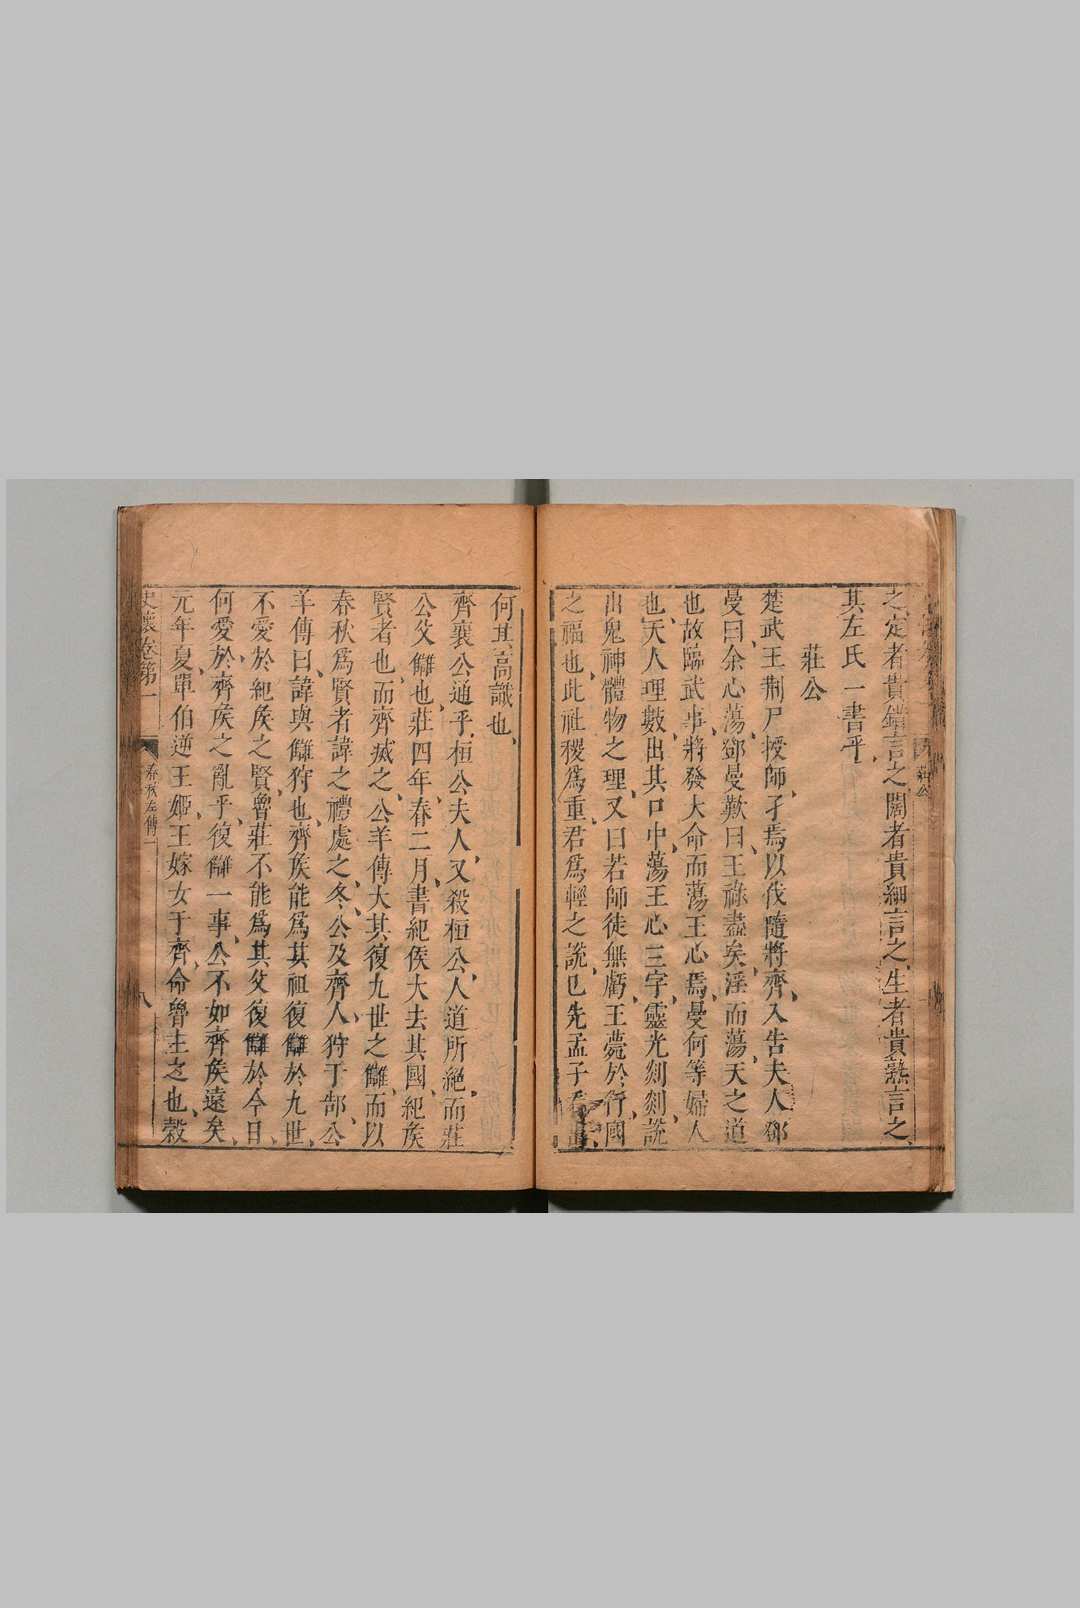 之定者貴錯言之闊者貴細言之、生者貴熟言之、
其左氏一書乎、
莊公
楚武王荆尸授師、孑焉以伐隨將齊、入告夫人鄧
曼曰、余心蕩、鄧曼歎曰、王祿盡矣、淫而蕩、天之道
也、故臨武事、將發大命而蕩王心焉、曼何等婦人
也、天人理數出其口中、蕩王心三字、靈光剡剡、說
出鬼神體物之理、又曰若師徒無虧、王薨於行、國
之福也、此社稷爲重君爲輕之說、已先孟子看出、
何其高識也、
齊襄公通乎桓公夫人、又殺桓公、人道所絶、而莊
公父讎也、莊四年、春二月、書紀侯大去其國、紀矦
賢者也、而齊滅之、公羊傳大其復九世之讎、而以
春秋爲賢者諱之禮處之、冬、公及齊人、狩于郜、公
羊傳曰、諱與讎狩也、齊矦能爲其祖復讎於九世、
不愛於紀矦之賢、魯莊不能爲其父復讎於今日、
何愛於齊矦之亂乎、復讎一事、公不如齊矦遠矣、
元年夏、單伯逆王姬、王嫁女于齊、命魯主之也、穀
史懷卷第一
春秋左傳一
八